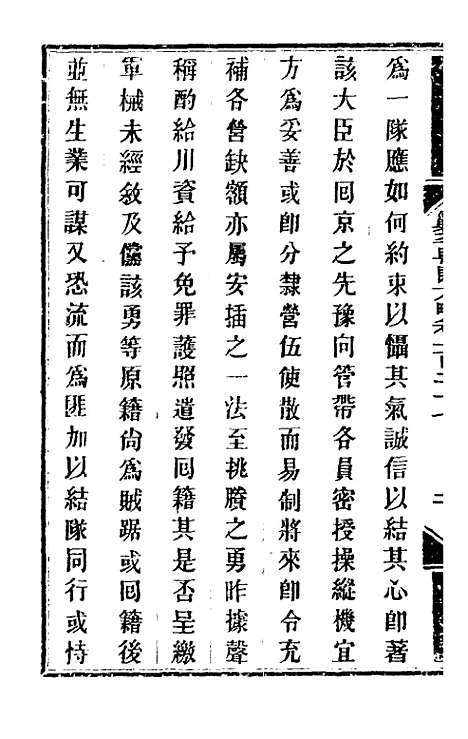 爲一隊應如何約束以懾其氣誠信以結其心卽著
該大臣於囘京之先豫向管帶各員密授操縱機宜
方爲妥善或卽分隸營伍使散而易制將來卽令充
補各營缺額亦屬安插之一法至挑賸之勇昨據聲
稱酌給川資給予免罪護照遣發囘籍其是否呈繳
軍械未經敘及儻該勇等原籍尙爲賊踞或囘籍後
並無生業可謀又恐流而爲匪加以結隊同行或恃
二